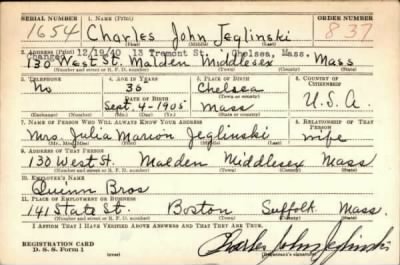 SERIAL NUMBER 1. NAME (Print) ORDER NUMBER
1654 Charles John Jeglinski 837
(First) (Middle) (Last)
2. ADDRESS (Print)
Change 12/19/40 13 Tremont St., Chelsea, Mass.
130 West St. Malden Middlesex Mass
(Number and street or R. F. D. number) (Town) (County) (State)
3. TELEPHONE 4. AGE IN YEARS 5. PLACE OF BIRTH 6. COUNTRY OF CITIZENSHIP
No 35 Chelsea
(Town or county)
DATE OF BIRTH U.S.A.
Sept. 4-1905 Mass
(Exchange) (Number) (Mo.) (Day) (Yr.) (State or country)
7. NAME OF PERSON WHO WILL ALWAYS KNOW YOUR ADDRESS 8. RELATIONSHIP OF THAT PERSON
Mrs. Julia Marion Jeglinski wife
(Mr., Mrs., Miss) (First) (Middle) (Last)
9. ADDRESS OF THAT PERSON
130 West St. Malden Middlesex Mass
(Number and street or R. F. D. number) (Town) (County) (State)
10. EMPLOYER'S NAME
Quinn Bros
11. PLACE OF EMPLOYMENT OR BUSINESS
141 State St. Boston Suffolk Mass.
(Number and street or R. F. D. number) (Town) (County) (State)
I AFFIRM THAT I HAVE VERIFIED ABOVE ANSWERS AND THAT THEY ARE TRUE.
REGISTRATION CARD
D. S. S. Form 1 Charles John Jeglinski
(Registrant's signature)